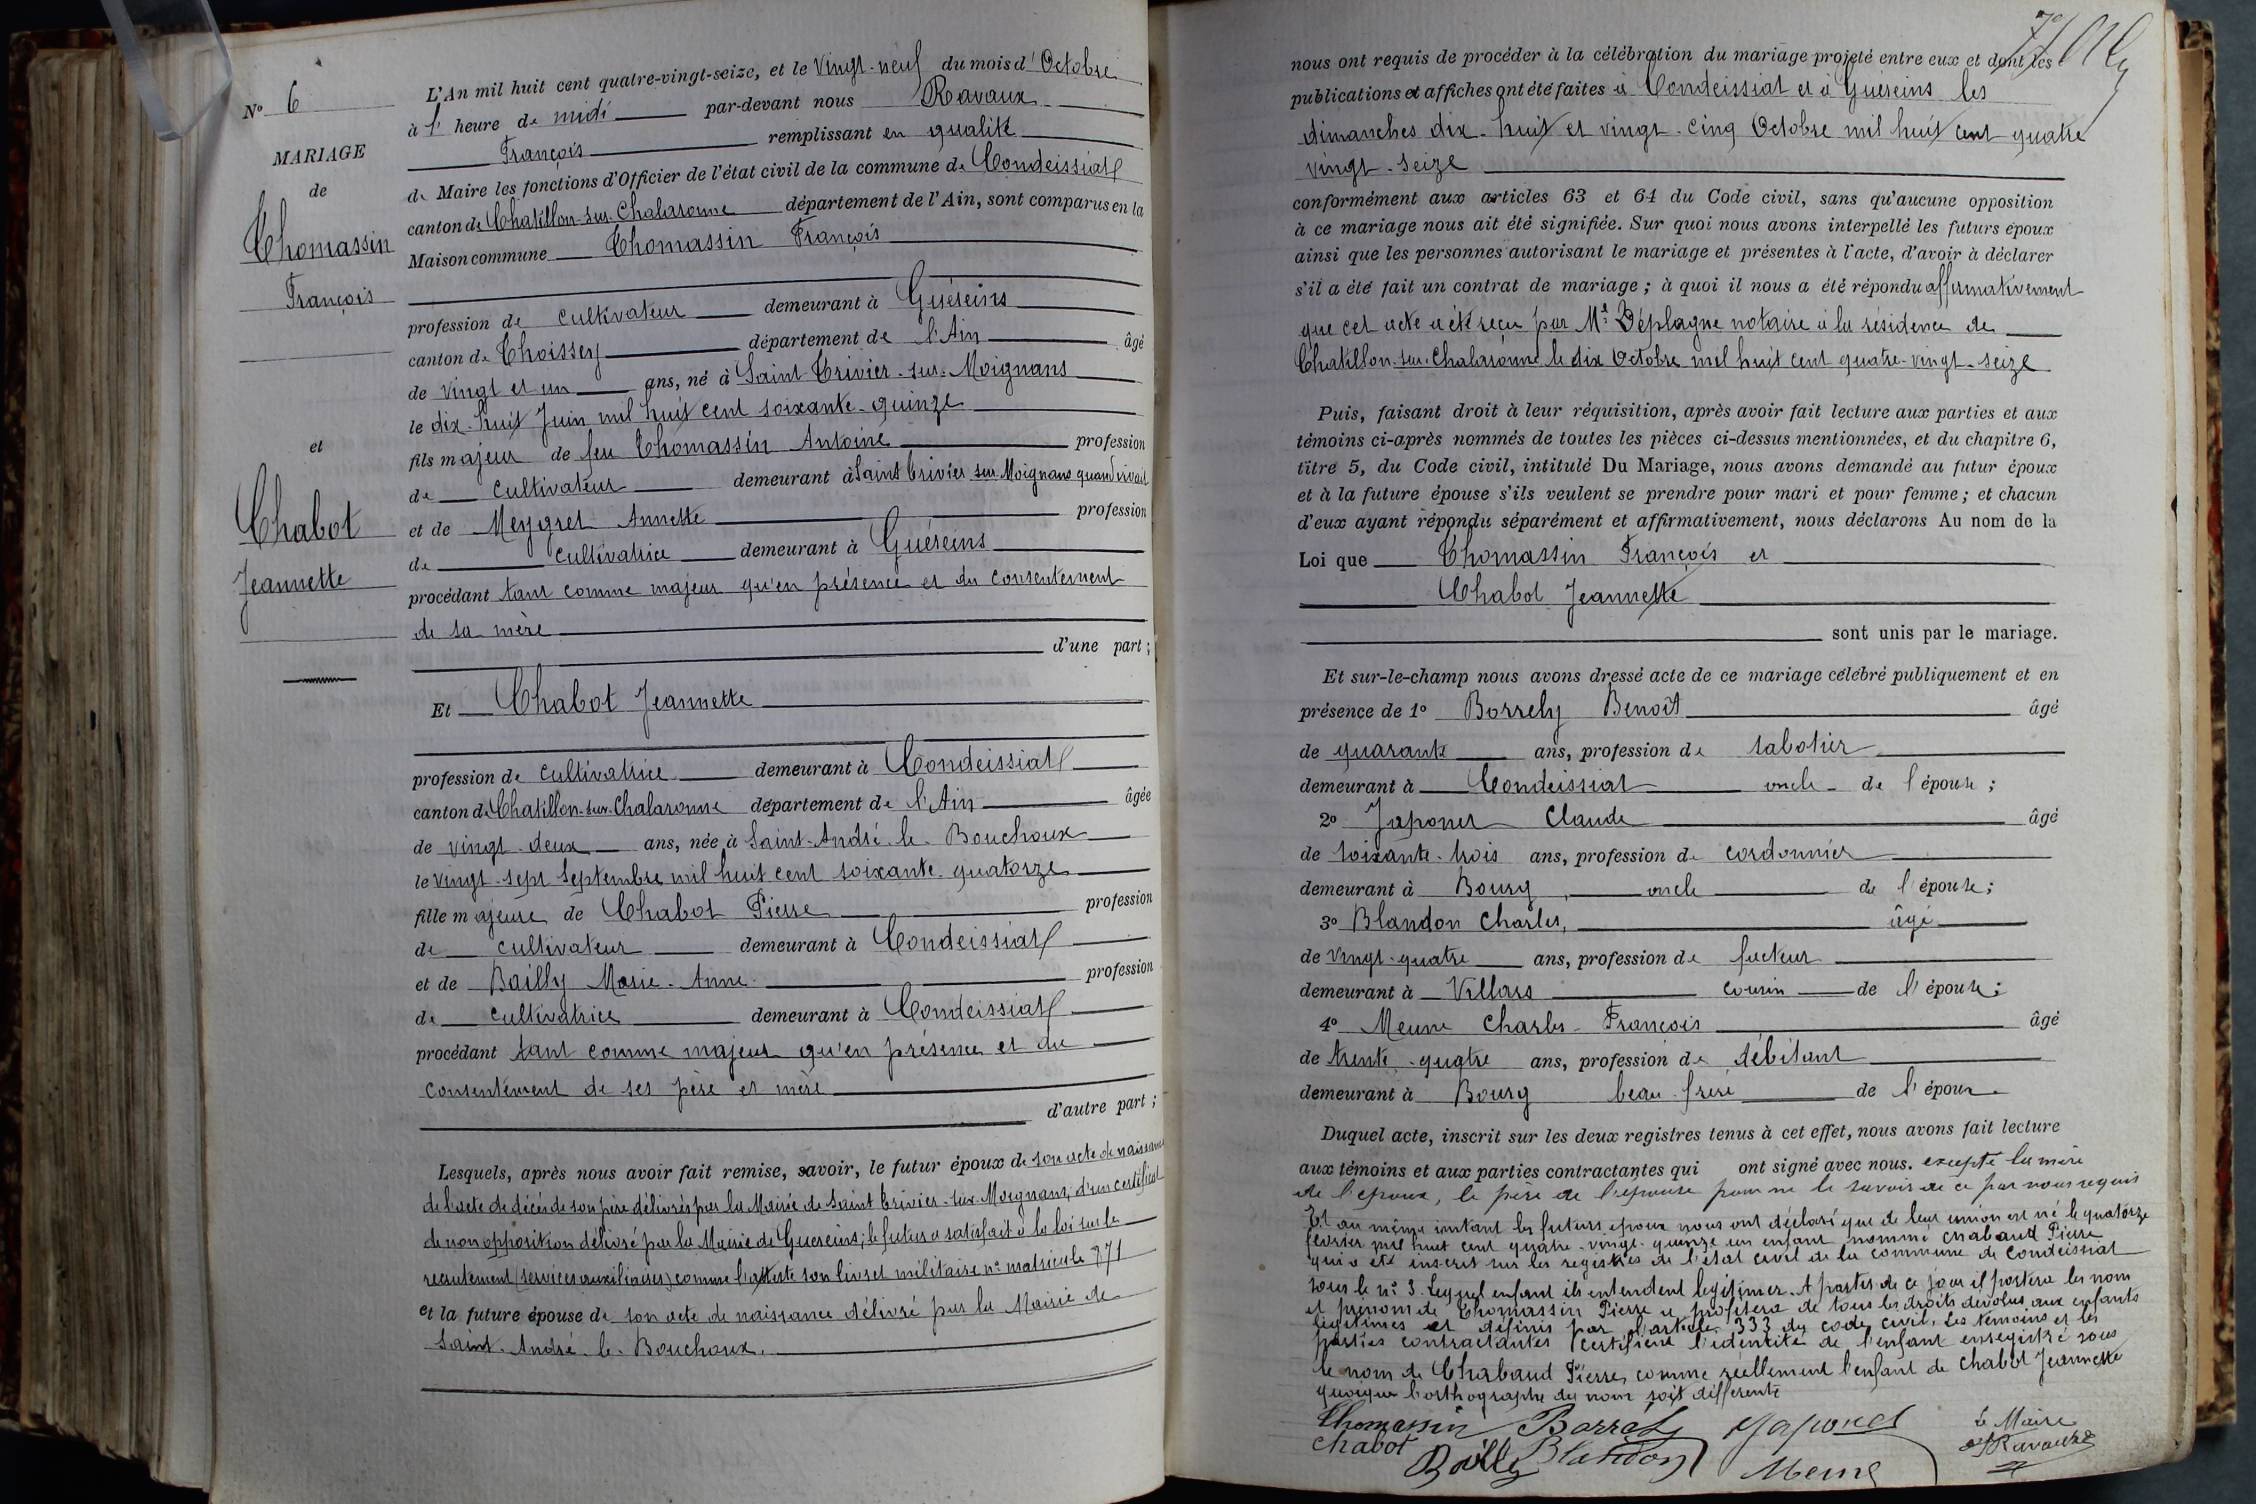 N° 6
MARIAGE
de
Thomassin
François
et
Chabot
Jeannette
L'An mil huit cent quatre-vingt-seize, et le vingt-neuf du mois d'Octobre
à l' heure de midi par-devant nous Ravaux
François remplissant en qualité
de Maire les fonctions d'Officier de l'état civil de la commune de Condeissiat
canton de Chatillon-sur-Chalaronne département de l'Ain, sont comparus en la
Maison commune Thomassin François
profession de cultivateur demeurant à Guéreins
canton de Thoissey département de l'Ain âgé
de vingt et un ans, né à Saint Trivier-sur-Moignans
le dix-huit Juin mil huit cent soixante-quinze
fils majeur de feu Thomassin Antoine profession
de cultivateur demeurant à Saint Trivier sur Moignans quand vivait
et de Meygret Annette profession
de cultivatrice demeurant à Guéreins
procédant tant comme majeur qu'en présence et du consentement
de sa mère
d'une part ;
Et Chabot Jeannette
profession de cultivatrice demeurant à Condeissiat
canton de Chatillon-sur-Chalaronne département de l'Ain âgée
de vingt-deux ans, née à Saint-André-le-Bouchoux
le vingt-sept Septembre mil huit cent soixante-quatorze
fille majeure de Chabot Pierre profession
de cultivateur demeurant à Condeissiat
et de Bailly Marie-Anne profession
de cultivatrice demeurant à Condeissiat
procédant tant comme majeur qu'en présence et du
consentement de ses père et mère
d'autre part ;
Lesquels, après nous avoir fait remise, savoir, le futur époux de son acte de naissance
de l'acte de décès de son père délivrés par la Mairie de Saint Trivier-sur-Moignans, d'un certificat
de non opposition délivré par la Mairie de Guereins ; le futur a satisfait à la loi sur le
recrutement (services auxiliaires) comme l'atteste son livret militaire n° matricule 771
et la future épouse de son acte de naissance délivré par la Mairie de
Saint-André-le-Bouchoux.
nous ont requis de procéder à la célébration du mariage projeté entre eux et dont les
publications et affiches ont été faites à Condeissiat et à Guéreins les
dimanches dix-huit et vingt-cinq Octobre mil huit cent quatre
vingt-seize
conformément aux articles 63 et 64 du Code civil, sans qu'aucune opposition
à ce mariage nous ait été signifiée. Sur quoi nous avons interpellé les futurs époux
ainsi que les personnes autorisant le mariage et présentes à l'acte, d'avoir à déclarer
s'il a été fait un contrat de mariage ; à quoi il nous a été répondu affirmativement
que cet acte a été reçu par Me Déplagne notaire à la résidence de
Chatillon-sur-Chalaronne le dix Octobre mil huit cent quatre-vingt-seize
Puis, faisant droit à leur réquisition, après avoir fait lecture aux parties et aux
témoins ci-après nommés de toutes les pièces ci-dessus mentionnées, et du chapitre 6,
titre 5, du Code civil, intitulé Du Mariage, nous avons demandé au futur époux
et à la future épouse s'ils veulent se prendre pour mari et pour femme ; et chacun
d'eux ayant répondu séparément et affirmativement, nous déclarons Au nom de la
Loi que Thomassin François et
Chabot Jeannette
sont unis par le mariage.
Et sur-le-champ nous avons dressé acte de ce mariage célébré publiquement et en
présence de 1° Borrely Benoît âgé
de quarante ans, profession de sabotier
demeurant à Condeissiat oncle de l'épouse ;
2° Japonet Claude âgé
de soixante-trois ans, profession de cordonnier
demeurant à Bourg, oncle de l'épouse ;
3° Blandon Charles, âgé
de vingt-quatre ans, profession de facteur
demeurant à Villars cousin de l'épouse ;
4° Meune Charles-François âgé
de trente-quatre ans, profession de débitant
demeurant à Bourg beau-frère de l'époux.
Duquel acte, inscrit sur les deux registres tenus à cet effet, nous avons fait lecture
aux témoins et aux parties contractantes qui ont signé avec nous. excepté la mère
de l'époux, le père de l'épouse pour ne le savoir de ce par nous requis
Et au même instant les futurs époux nous ont déclaré que de leur union est né le quatorze
février mil huit cent quatre-vingt-quinze un enfant nommé Chabaud Pierre
qui a été inscrit sur les registres de l'état civil de la commune de Condeissiat
sous le n° 3. Lequel enfant ils entendent légitimer. A partir de ce jour il portera les nom
et prénom de Thomassin Pierre et profitera de tous les droits dévolus aux enfants
légitimes et définis par l'article 333 du code civil. Les témoins et les
parties contractantes certifient l'identité de l'enfant enregistré sous
le nom de Chabaud Pierre, comme réellement l'enfant de Chabot Jeannette
quoique l'orthographe du nom soit différente
Thomassin Borrely Japonet Le Maire
Chabot Bailly Blandon Meune Ravaux